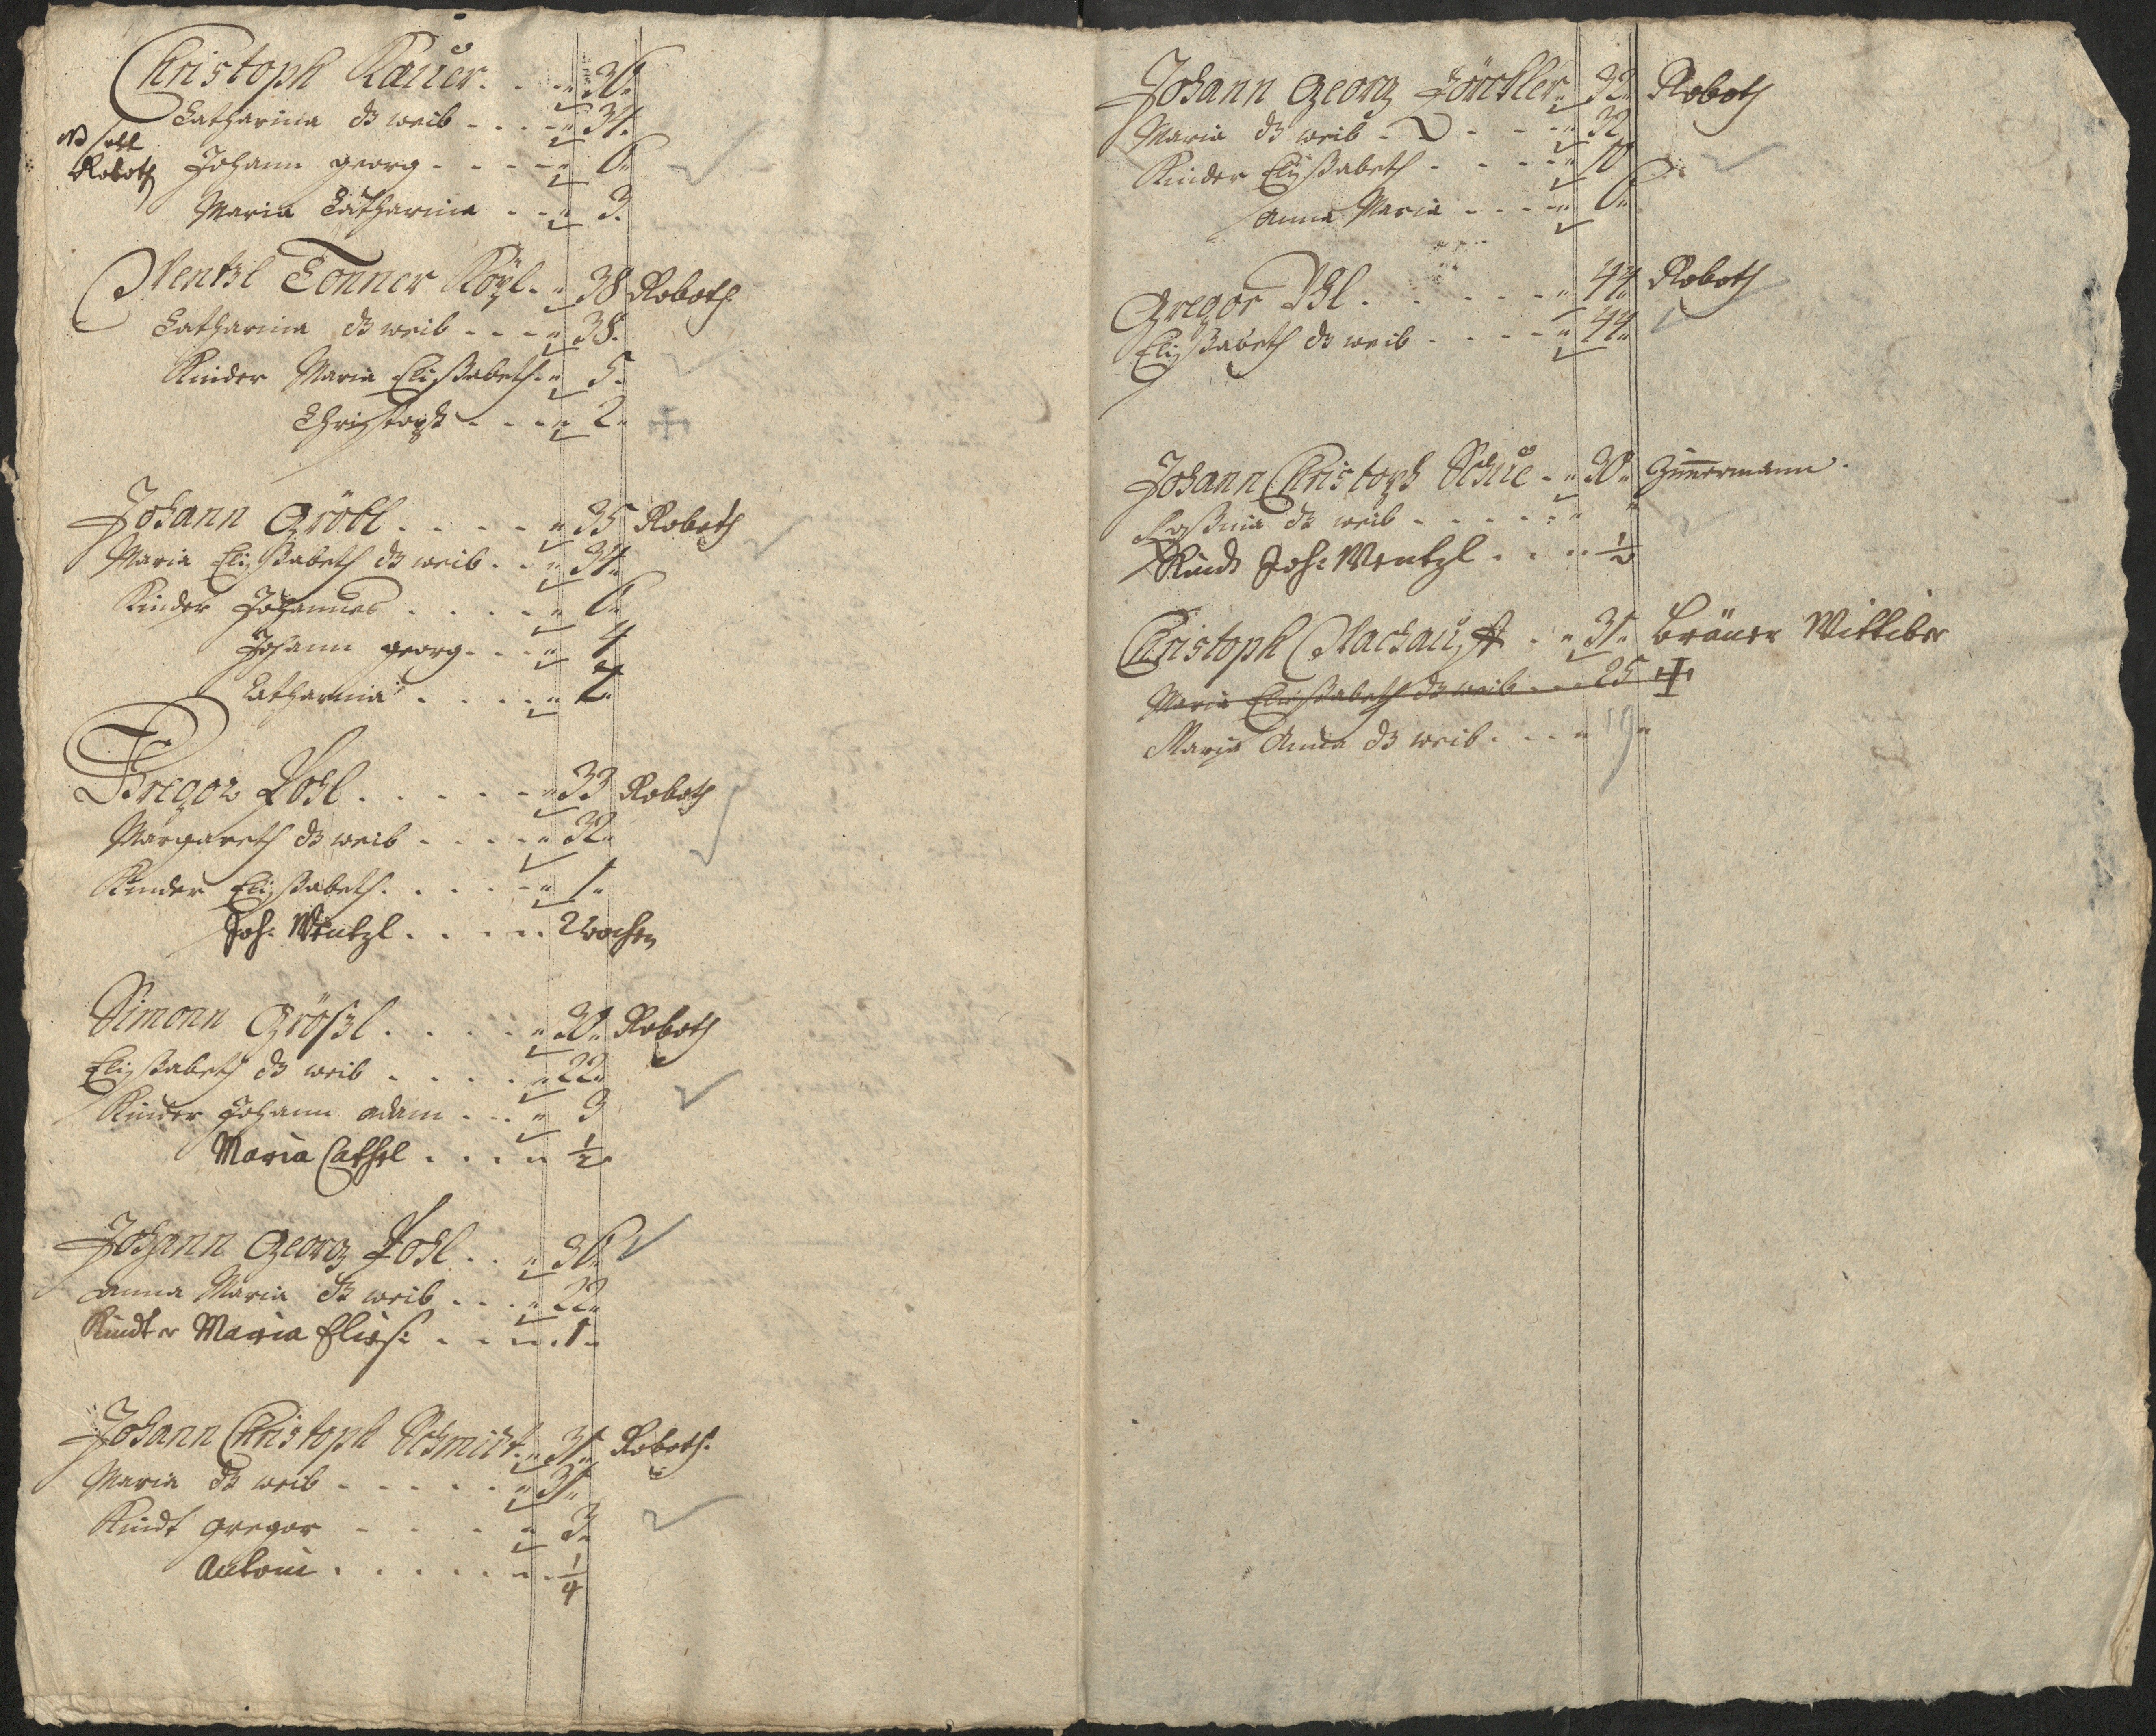 Christoph Kauer. . . . „ 36„
Catharina ds weib . . . . „ 34„
NB soll
Roboth
Johann georg . . . . . „ 6„
Maria Catharina . . . „ 3.
Wentzl Tonner . . „ 38 Roboth
Catharina ds weib . . . . „ 38.
Kinder Maria Elisabeth . „ 5„
Christoph . . . . „ 2„
Johann Gröbl . . . . . „ 35 Roboth
Maria Elisabeth ds weib . . „ 34„
Kinder Johannes . . . . . „ 6„
Johann georg . . . „ 4
Catharina . . . . „ 2„
Gregor Pohl . . . . . . „ 33 Roboth
Margareth ds weib . . . . „ 32„
Kinder Elisabeth . . . . . „ 1„
Joh: Wentzl . . . . . 2 wochen
Simonn Größl . . . . . „ 30„ Roboth
Elisabeth ds weib . . . . . „ 22„
Kinder Johann Adam . . . „ 3
Maria Cathel . . . . „ 1/2
Johann Georg Pohl . . . „ 36„
Anna Maria ds weib . . . . „ 22„
Kindter Maria Elis: . . . . „ 1„
Johann Christoph Schmidt . „ 31„ Roboth.
Maria ds weib . . . . . . „ 31„
Kindt gregor . . . . „ 3„
Antoni . . . . . . . 1/4
Johann Georg „ 32„ Roboth
Maria ds weib . . . . . „ 32
Kinder Elisabeth . . . . . „ 10
Anna Maria . . . . „ 6„
Gregor . . . . . . „ 44„ Roboth
Elisabeth ds weib . . . . . „ 44„
Johann Christoph . „ 30„ Zimmermann.
ds weib . . . . . . „ „
Kindt Joh: Wentzl . . . . . 1/2
Christoph . . „ 31„ Bräuer Wittiber
Maria Elisabeth ds weib . . . . 25
Maria Anna ds weib . . . . „ 19„